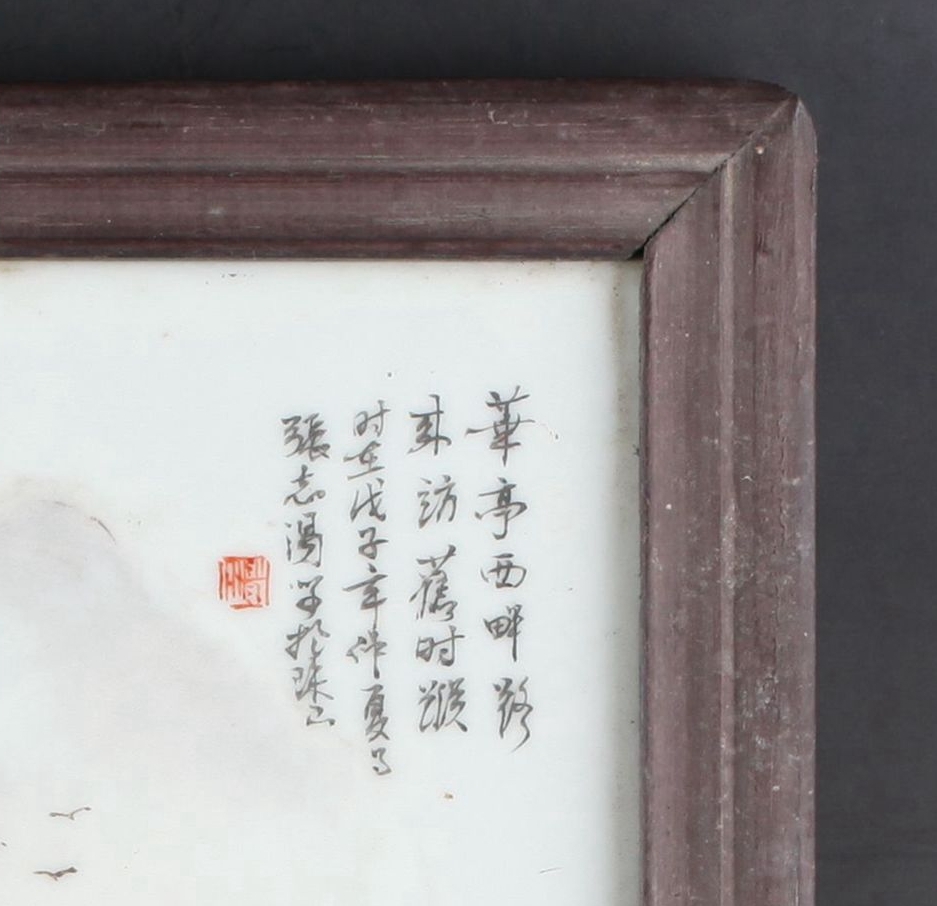 華亭西畔路
来訪舊时蹤
时在戊子年仲夏月
張志湯写於珠山